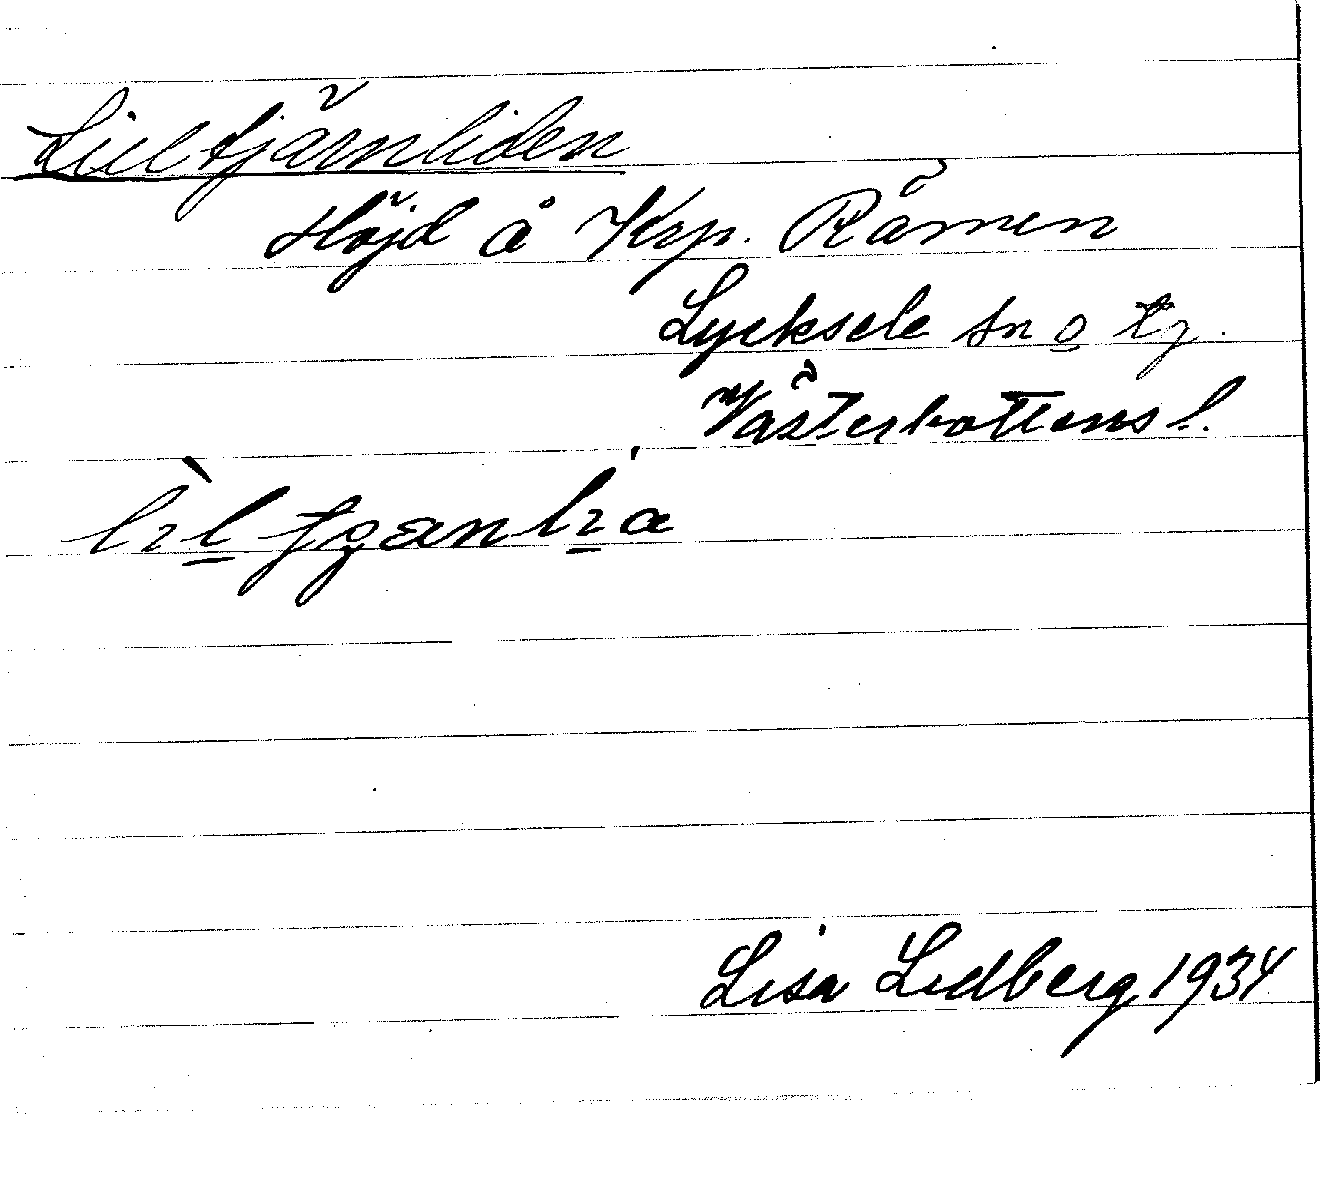 Lilltjärnliden
Höjd å Krp. Råmen
Lycksele sn o tg.
Västerbottens l.
Lisa Lidberg 1934